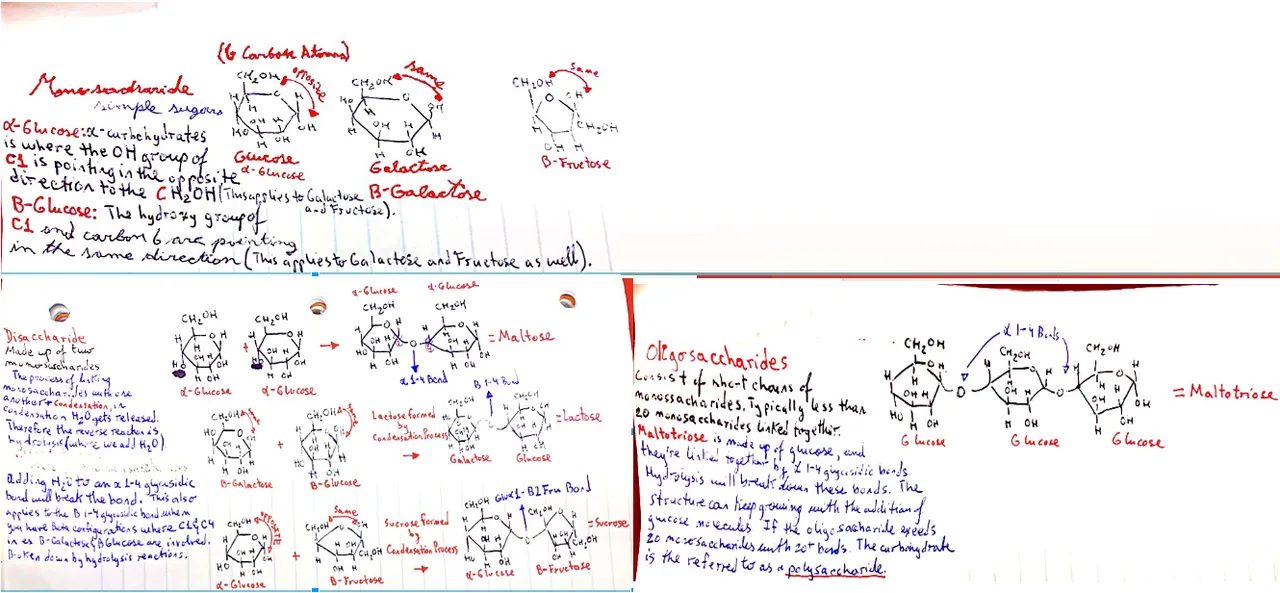 (6 Carbon Atoms)
Monosaccharide
simple sugars
α-Glucose: α-carbohydrates
is where the OH group of
C1 is pointing in the opposite
direction to the CH2OH (This applies to Galactose
and Fructose).
B-Glucose: The hydroxy group of
C1 and carbon 6 are pointing
in the same direction (This applies to Galactose and Fructose as well).
CH2OH opposite
H O H
H
OH H
HO OH
H OH
Glucose
α-Glucose
CH2OH same
HO O OH
H
OH H
H H
H OH
Galactose
B-Galactose
CH2OH same
O OH
H CH2OH
OH H
B-Fructose
Disaccharide
Made up of two
monosaccharides
The process of linking
monosaccharides with one
another = Condensation, in
condensation H2O gets released.
Therefore the reverse reaction is
hydrolysis (where we add H2O)
adding H2O to an α 1-4 glycosidic
bond will break the bond. This also
applies to the B 1-4 glycosidic bond when
you have Beta configurations where C1 & C4
in ex B-Galactose & B Glucose are involved.
Broken down by hydrolysis reactions.
α-Glucose α-Glucose
CH2OH CH2OH CH2OH CH2OH
+ → O = Maltose
α-Glucose α-Glucose
α 1-4 Bond
B 1-4 Bond
CH2OH CH2OH
+ Lactose formed
by
Condensation Process
→ = Lactose
B-Galactose B-Glucose
Galactose Glucose
CH2OH OPPOSITE
CH2OH Same
+ Sucrose formed
by
Condensation Process
→ Glu α1-B2 Fru Bond
CH2OH O = Sucrose
α-Glucose B-Fructose
α-Glucose B-Fructose
Oligosaccharides
Consist of short chains of
monossacharides. Typically less than
20 monosaccharides linked together.
Maltotriose is made up of glucose, and
they're linked together by α 1-4 glycosidic bonds.
Hydrolysis will break down these bonds. The
structure can keep growing with the addition of
glucose molecules. If the oligosaccharide exceeds
20 monosaccharides with 20+ bonds. The carbohydrate
is the referred to as a polysaccharide.
α 1-4 Bonds
CH2OH CH2OH CH2OH
O O = Maltotriose
Glucose Glucose Glucose